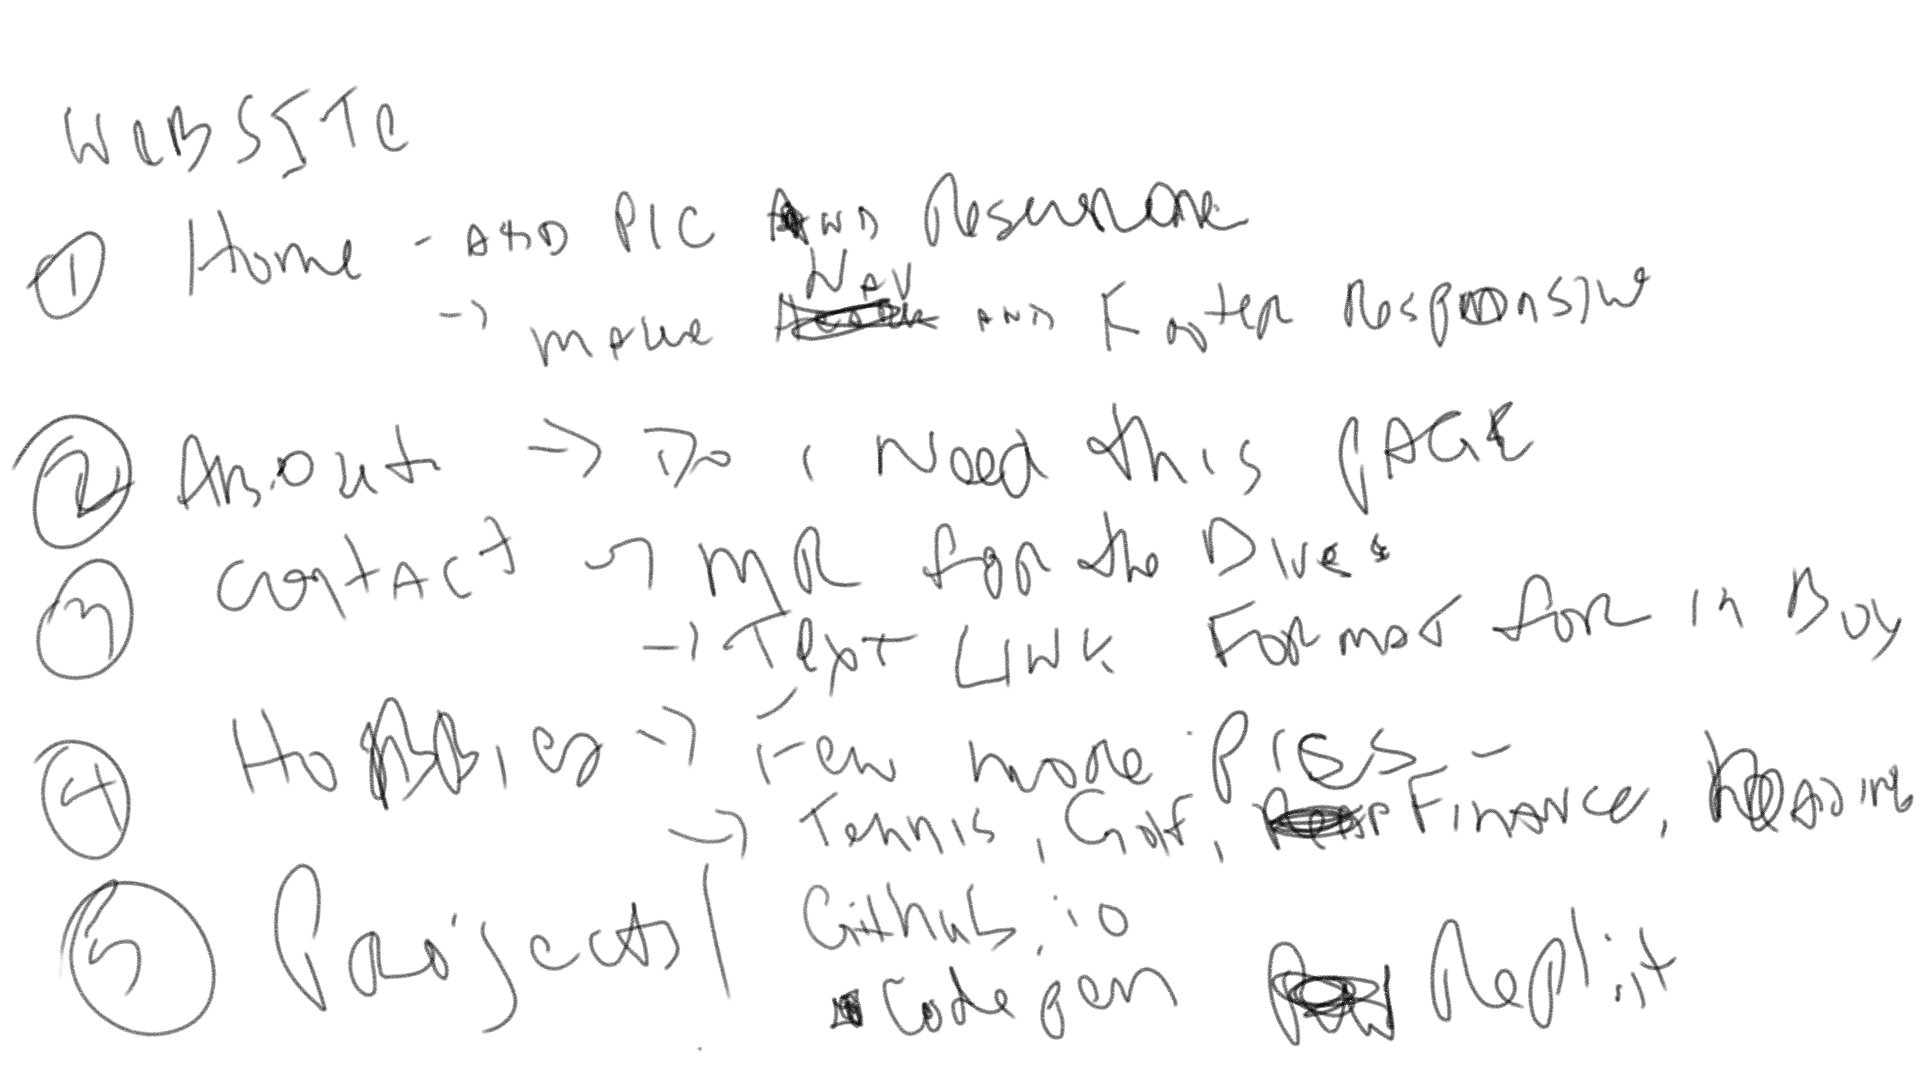 WeBSITe
① Home - ADD PIC AND Resume
→ make Nav AND Footer Responsive
② About → Do i Need this PAGE
③ contACt → MR for the Dives
→ Text LINK Format for in Buy
④ HoBBies → Few more Pics -
→ Tennis, Golf, Finance, ReADing
⑤ Projects | Github.io
Code pen Replit